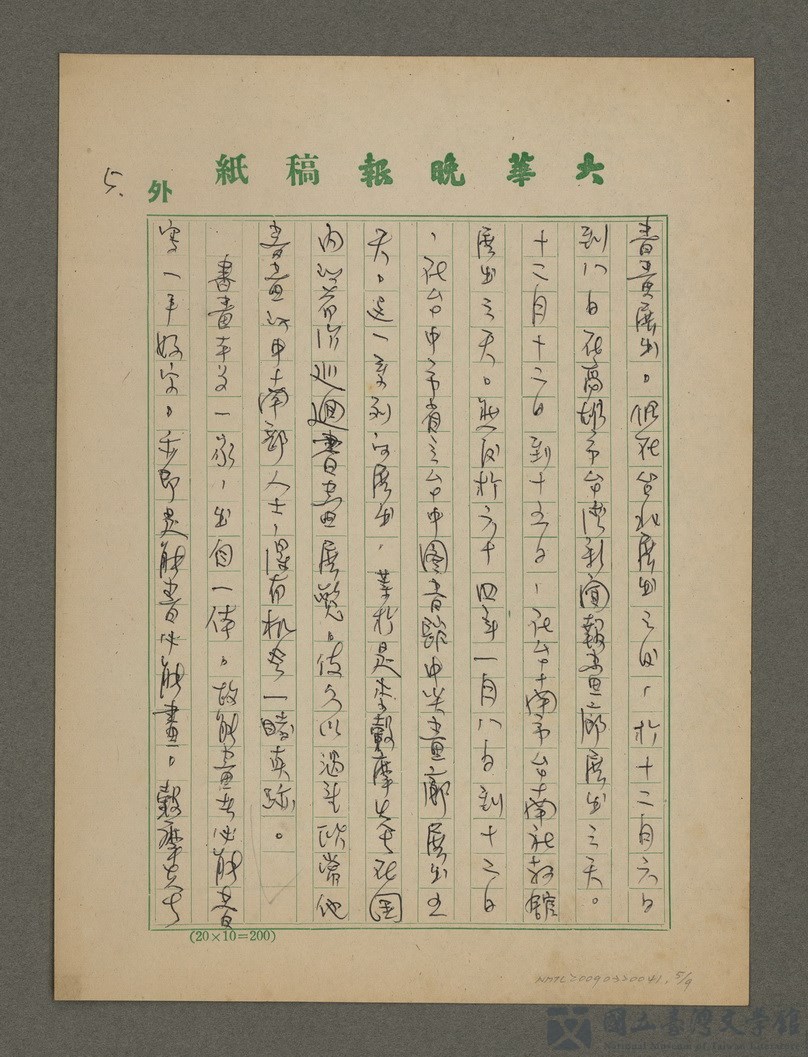 大華晚報稿紙
外
5.
書畫展出。但在台北展出之後,於十二月六日
到八日在高雄市台湾新闻報畫廊展出三天。
十二月十二日到十五日,在台南市台南社教館
展出三天。然後於六十四年一月八日到十二日
,在台中市省立台中图書館中興畫廊展出五
天。這一系列的展出,等於是李穀摩先生在国
内的首次巡迴書畫展覧。使久以渴望欣賞他
書畫的中南部人士,得有机会一睹真跡。
書畫本是一家,出自一体。故能畫者必能書
寫一手好字。亦即是能書必能畫。穀摩先生
(20×10=200)
NMTL20090330041. 5/9
國立臺灣文學館
National Museum of Taiwan Literature